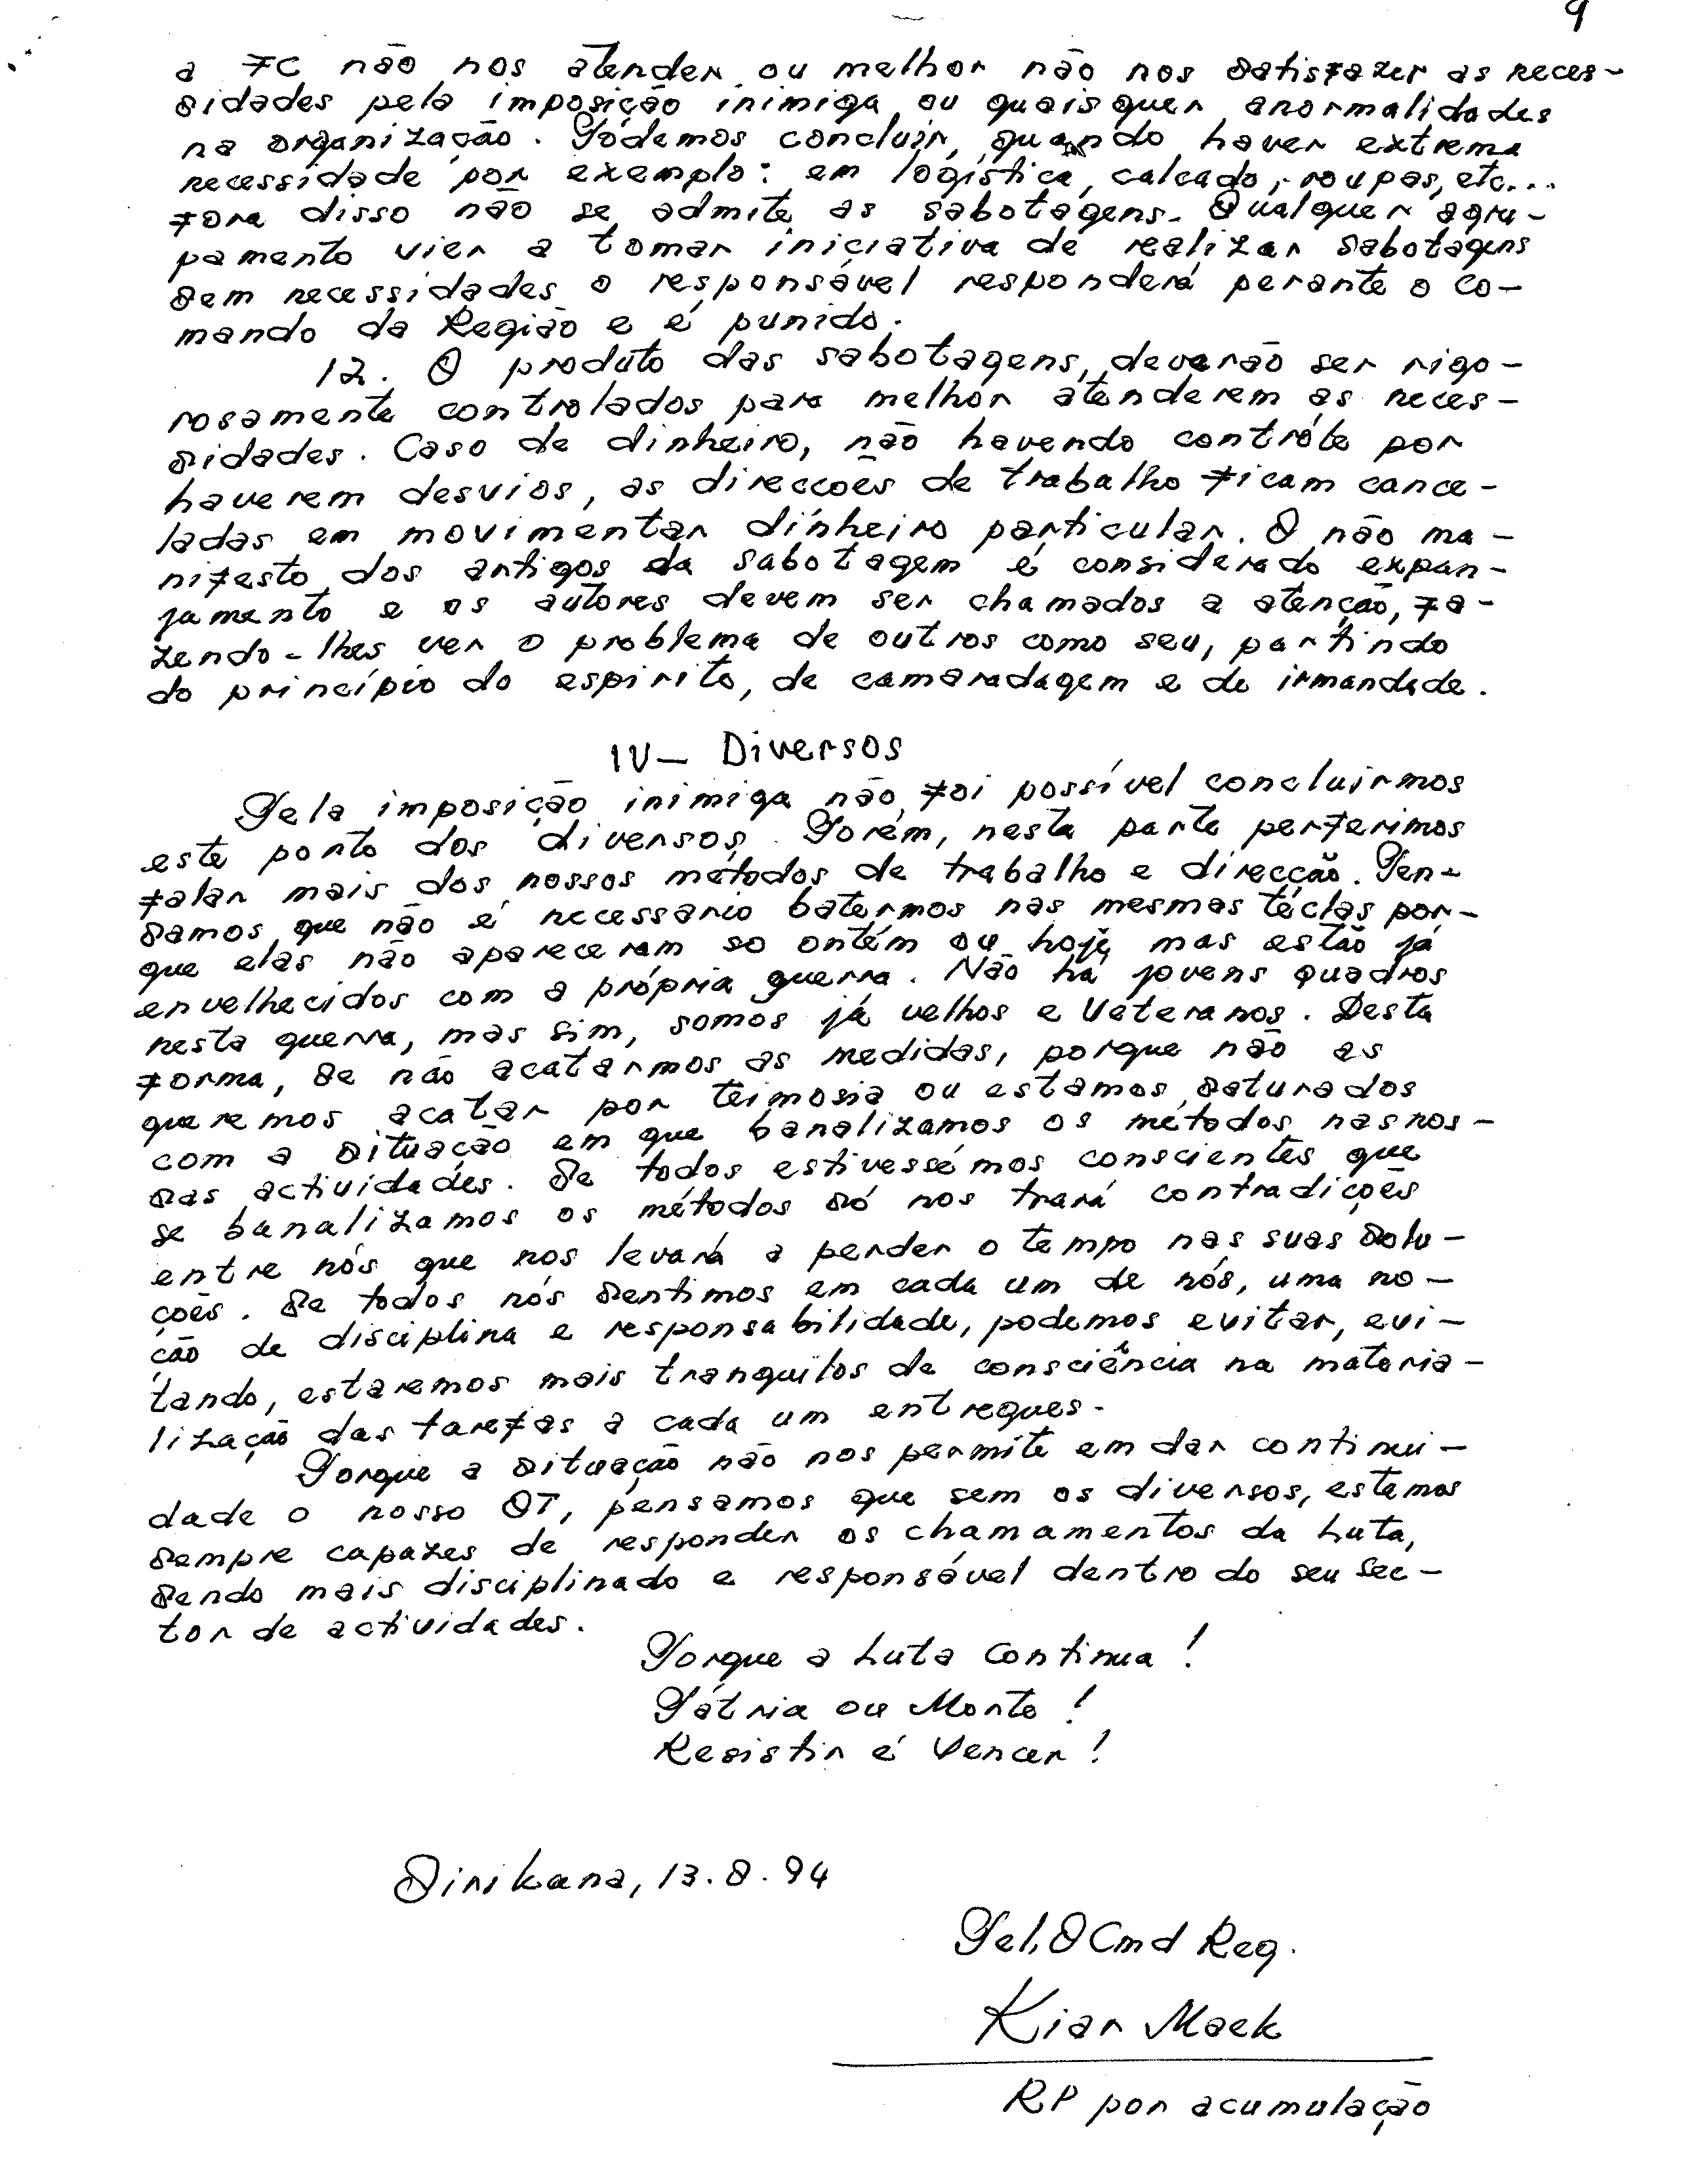 9
a FC não nos atender, ou melhor não nos satisfazer as neces-
sidades pela imposição inimiga ou quaisquer anormalidades
na organização. Pódemos concluir, quando haver extrema
necessidade por exemplo: em logística, calcado, roupas, etc...
fora disso não se admite as sabotagens. Qualquer agru-
pamento vier a tomar iniciativa de realizar sabotagens
sem necessidades o responsável responderá perante o co-
mando da Região e é punido.
12. O produto das sabotagens, deverão ser rigo-
rosamente controlados para melhor atenderem as neces-
sidades. Caso de dinheiro, não havendo contrôle por
haverem desvios, as direccões de trabalho ficam cance-
ladas em movimentar dinheiro particular. O não ma-
nifesto dos antigos da sabotagem é considerado expan-
jamento e os autores devem ser chamados a atenção, fa-
zendo-lhes ver o problema de outros como seu, partindo
do princípio do espirito, de camaradagem e de irmandade.
IV- Diversos
Pela imposição inimiga não foi possível concluirmos
este ponto dos diversos. Porém, nesta parte perferimos
falar mais dos nossos métodos de trabalho e direcção. Pen-
samos que não é necessario batermos nas mesmas téclas por-
que elas não apareceram so ontém ou hoje, mas estão já
envelhecidos com a própria guerra. Não há jovens quadros
nesta guerra, mas sim, somos já velhos e Veteranos. Desta
forma, se não acatarmos as medidas, porque não as
queremos acatar por teimosia ou estamos saturados
com a situação em que banalizamos os métodos nas nos-
sas actividades. Se todos estivessémos conscientes que
se banalizamos os métodos só nos trará contradições
entre nós que nos levará a perder o tempo nas suas solu-
ções. Se todos nós sentimos em cada um de nós, uma no-
ção de disciplina e responsabilidade, podemos evitar, evi-
tando, estaremos mais tranquilos de consciência na materia-
lização das tarefas a cada um entregues.
Porque a situação não nos permite em dar continui-
dade o nosso OT, pensamos que sem os diversos, estamos
sempre capazes de responder os chamamentos da Luta,
sendo mais disciplinado e responsável dentro do seu sec-
tor de actividades.
Porque a Luta Continua!
Pátria ou Morte!
Resistir é Vencer!
Sirikana, 13.8.94
Pel, O Cmd Reg.
Kiar Maek
RP por acumulação